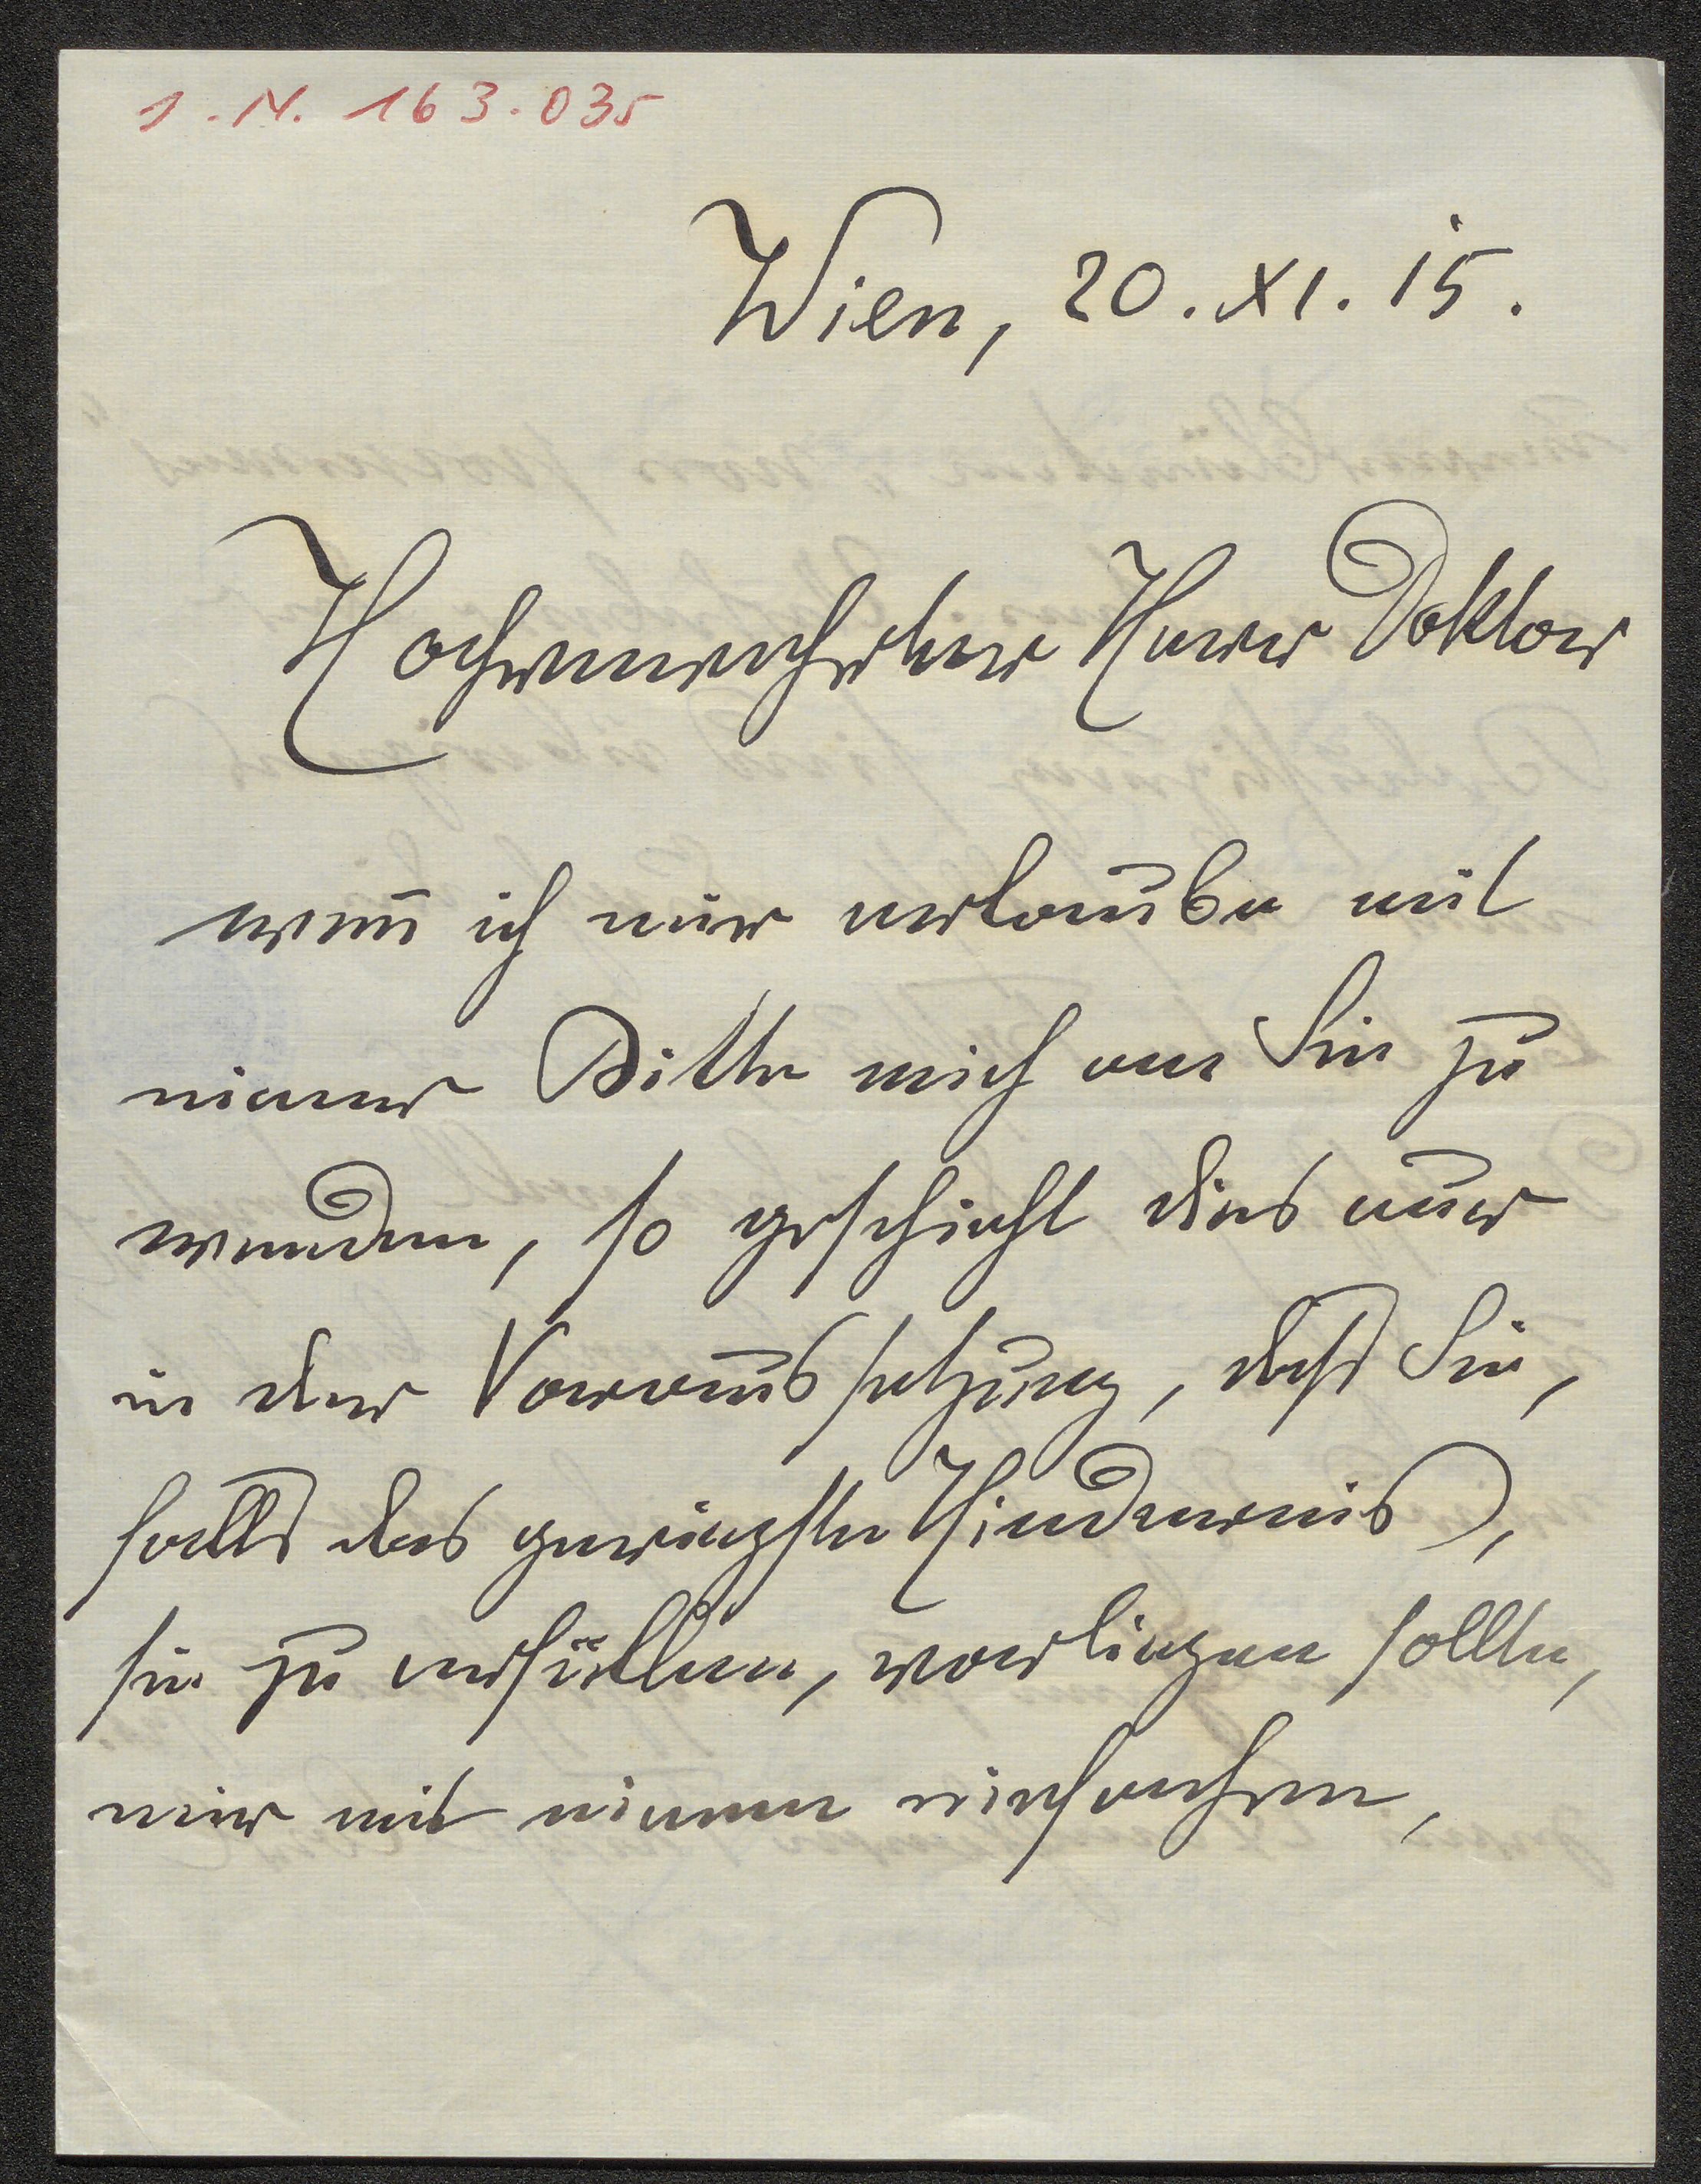 I. N. 163.035
Wien, 20. XI. 15.
Hochverehrter Herr Doktor
wenn ich mir erlaube mit
einer Bitte mich an Sie zu
wenden, so geschieht dies nur
in der Voraussetzung, daß Sie,
falls das geringste Hindernis,
sie zu erfüllen, vorliegen sollte,
mir mit einem einfachen,